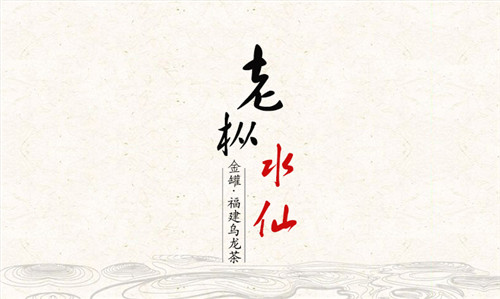 老枞
水仙
金罐·福建乌龙茶